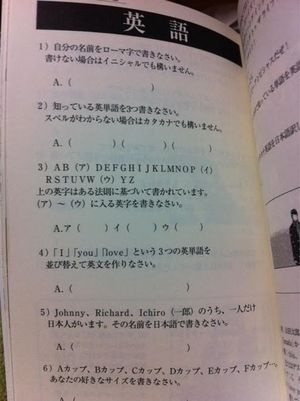 英語
1）自分の名前をローマ字で書きなさい。
書けない場合はイニシャルでも構いません。
A.（　　　　　　　　）
2）知っている英単語を3つ書きなさい。
スペルがわからない場合はカタカナでも構いません。
A.（　　　　）（　　　　）（　　　　）
3）A B（ア）D E F G H I J K L M N O P（イ）
R S T U V W（ウ）Y Z
上の英字はある法則に基づいて書かれています。
（ア）～（ウ）に入る英字を書きなさい。
A.ア（　　　）イ（　　　）ウ（　　　）
4）「I」「you」「love」という3つの英単語を
並び替えて英文を作りなさい。
A.（　　　　　　　　）
5）Johnny、Richard、Ichiro（一郎）のうち、一人だけ
日本人がいます。その名前を日本語で書きなさい。
A.（　　　　　　　　）
6）Aカップ、Bカップ、Cカップ、Dカップ、Eカップ、Fカップ
あなたの好きなサイズを書きなさい。